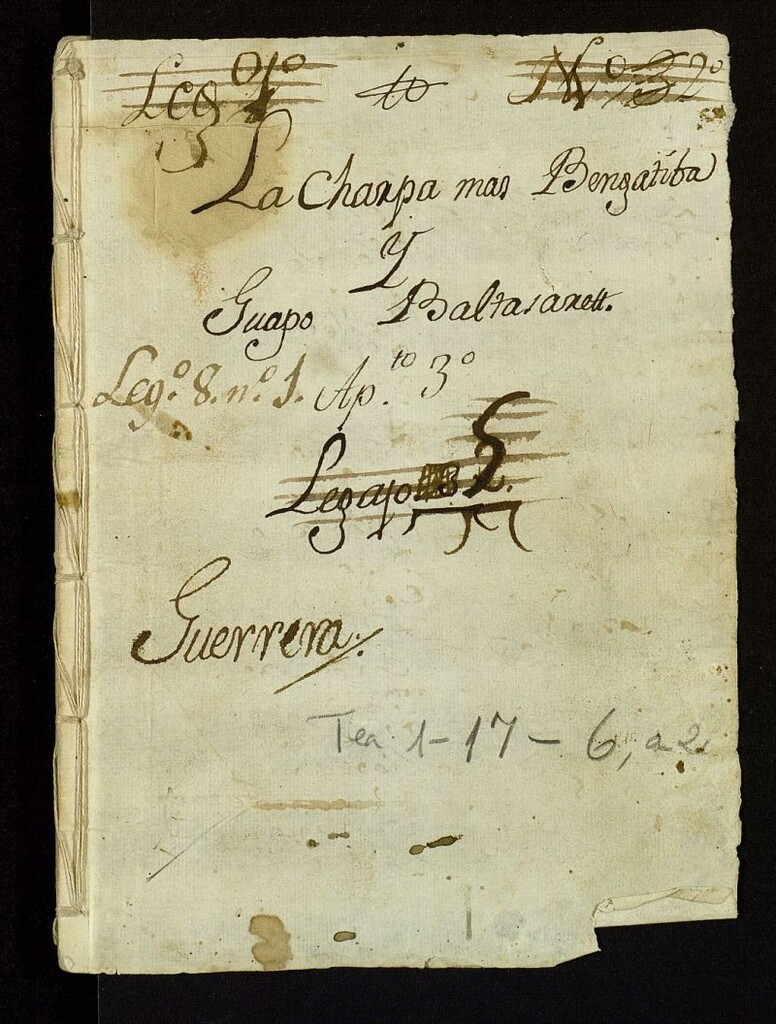 Leg
Nº 32º
La Charpa mas Bengatiba
Y
Guapo Baltasarett.
Legº. 8. nº. 1. Ap.to 3º
Legajo 5
Guerrera.
Tea 1-17-6, a 2